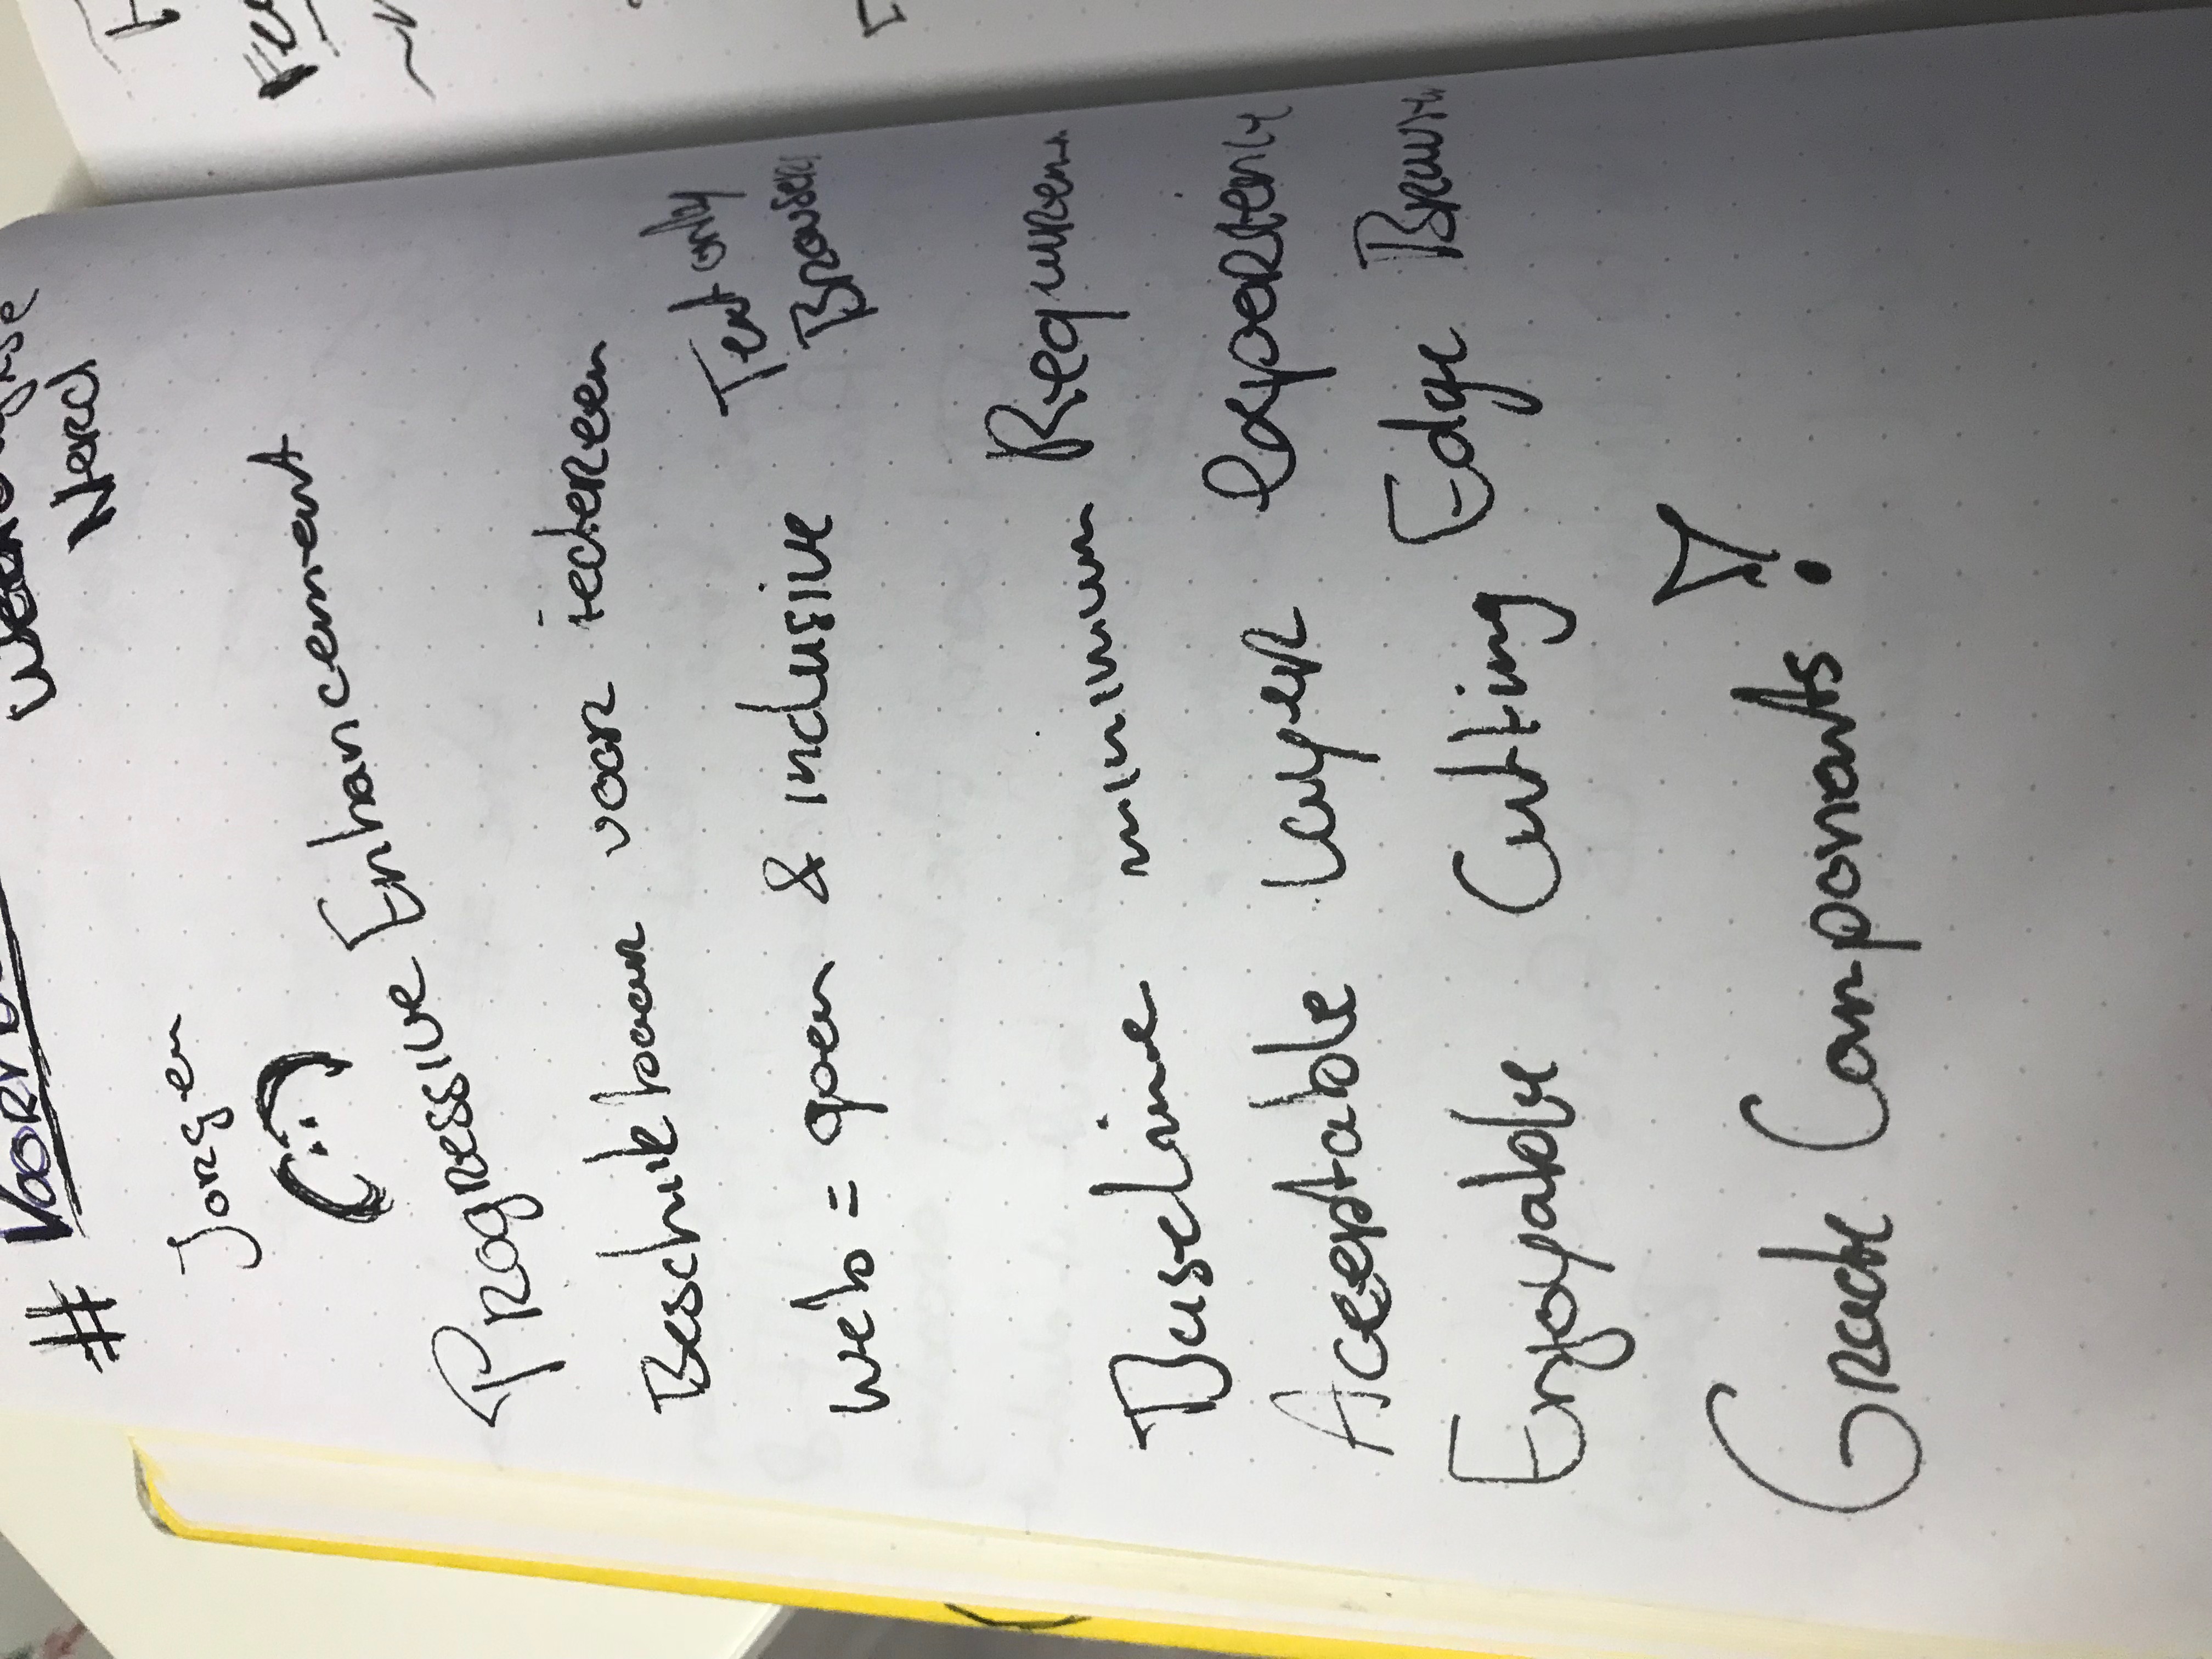 #
Nerd
Jorgen
Progressive Enhancement
Beschikbaar voor iedereen
web = open & inclusive
Text only
Browsers
Baseline minimum Requirem
Acceptable layer experience
Enjoyable Cutting Edge Browse
Grade Components !